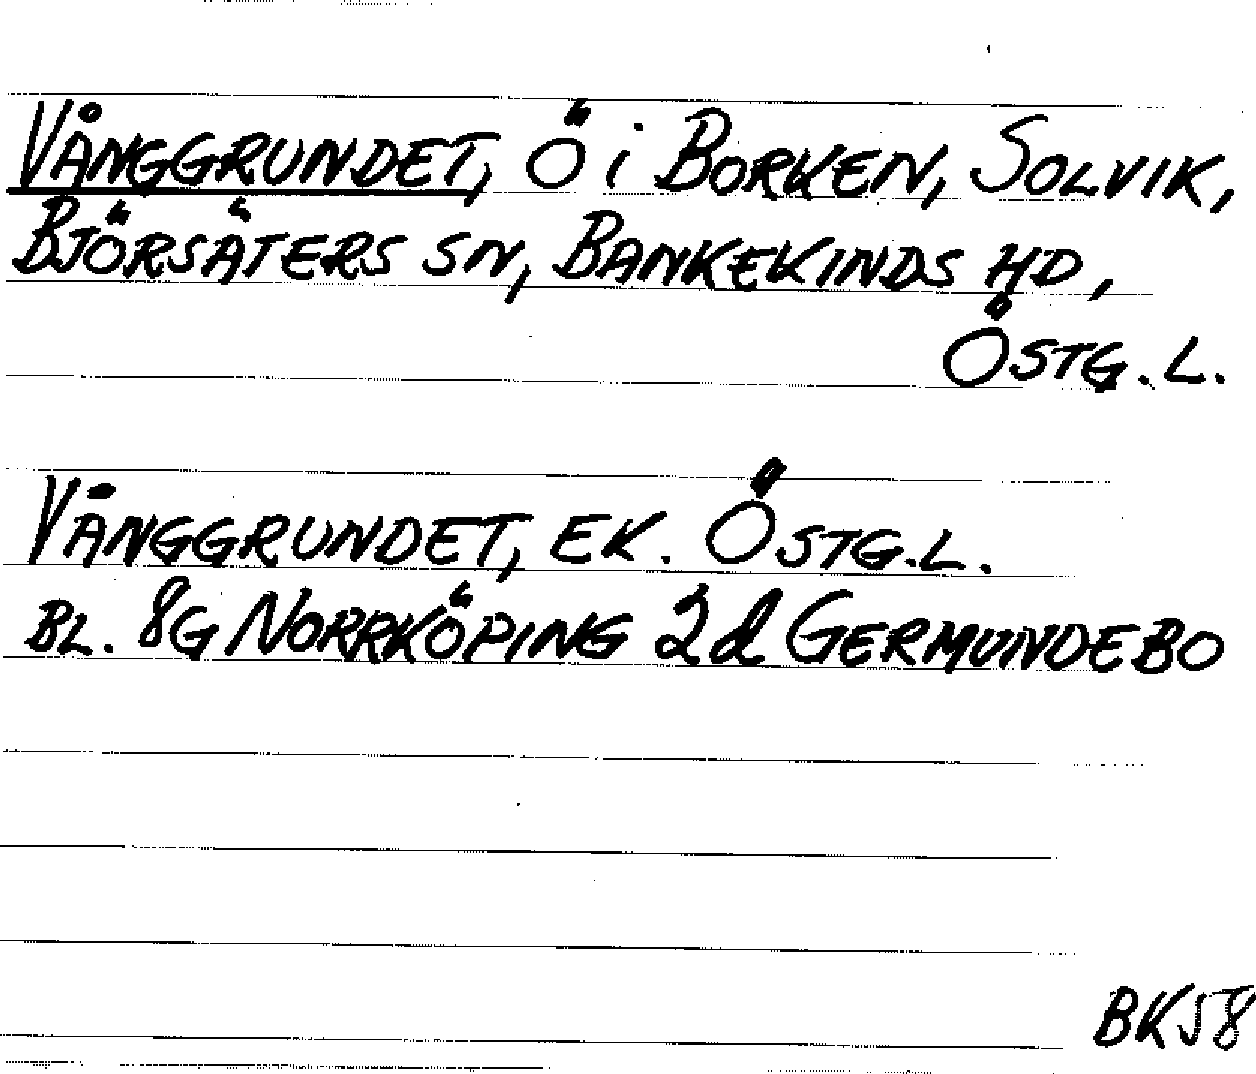 VÅNGGRUNDET, Ö i BORKEN, SOLVIK,
BJÖRSÄTERS SN, BANKEKINDS HD,
ÖSTG. L.
VÅNGGRUNDET, EK. ÖSTG. L.
BL. 8G NORRKÖPING 2d GERMUNDEBO
BK58